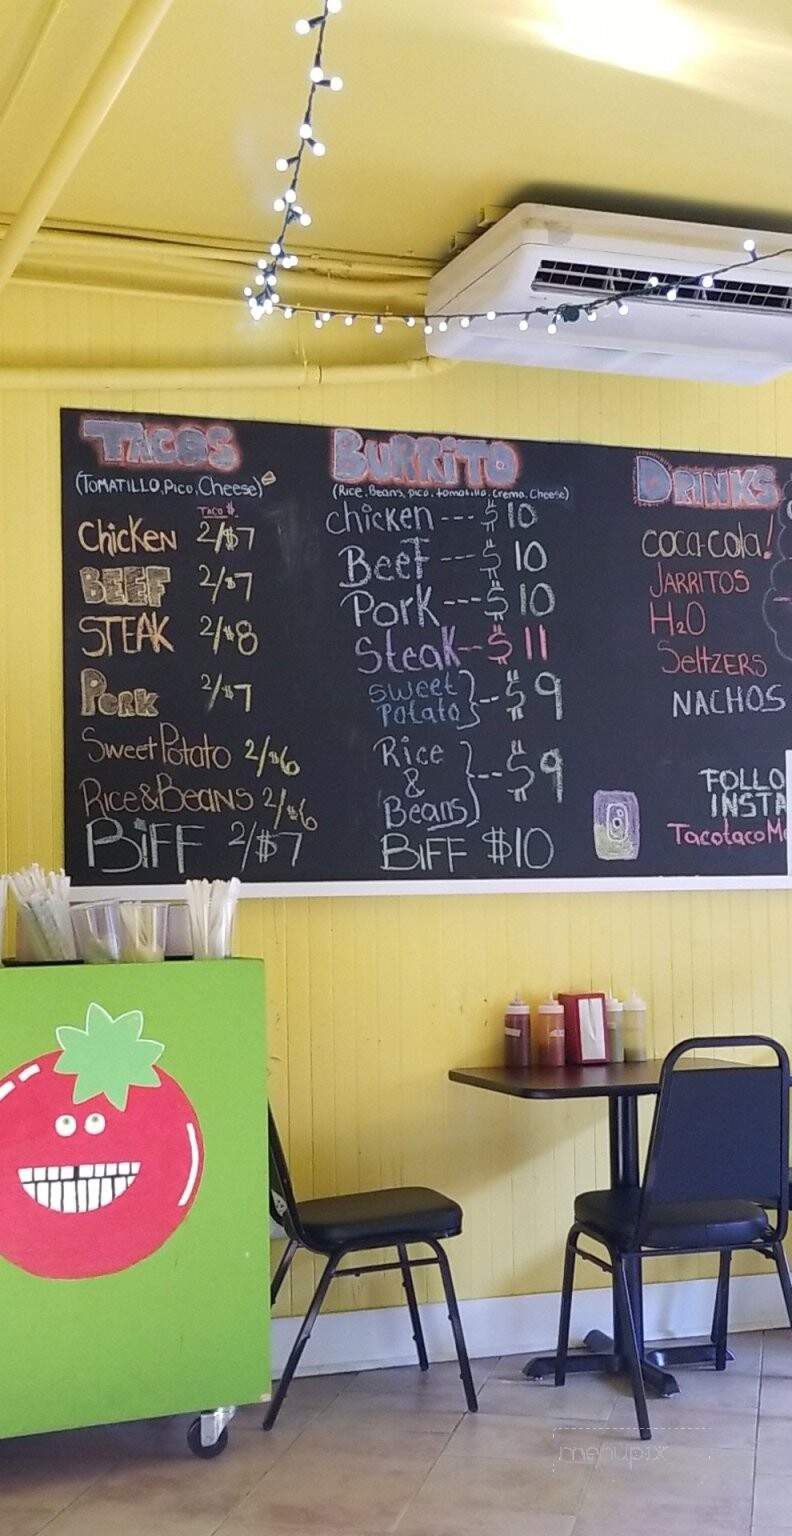 TACOS
(TOMATILLO, Pico, Cheese)
TACO $
ChicKen 2/$7
BEEF 2/$7
STEAK 2/$8
PORK 2/$7
Sweet Potato 2/$6
Rice & BEANS 2/$6
BiFF 2/$7
BURRiTO
(Rice, Beans, pico, tomatillo, crema, Cheese)
chicken --- $10
BeeF --- $10
Pork --- $10
Steak -- $11
sweet
Potato } -- $9
Rice
&
Beans } -- $9
BiFF $10
DRiNKS
coca-cola!
JARRITOS
H2O
SeltZERS
NACHOS
FOLLO
INSTA
TacotacoM
menupix